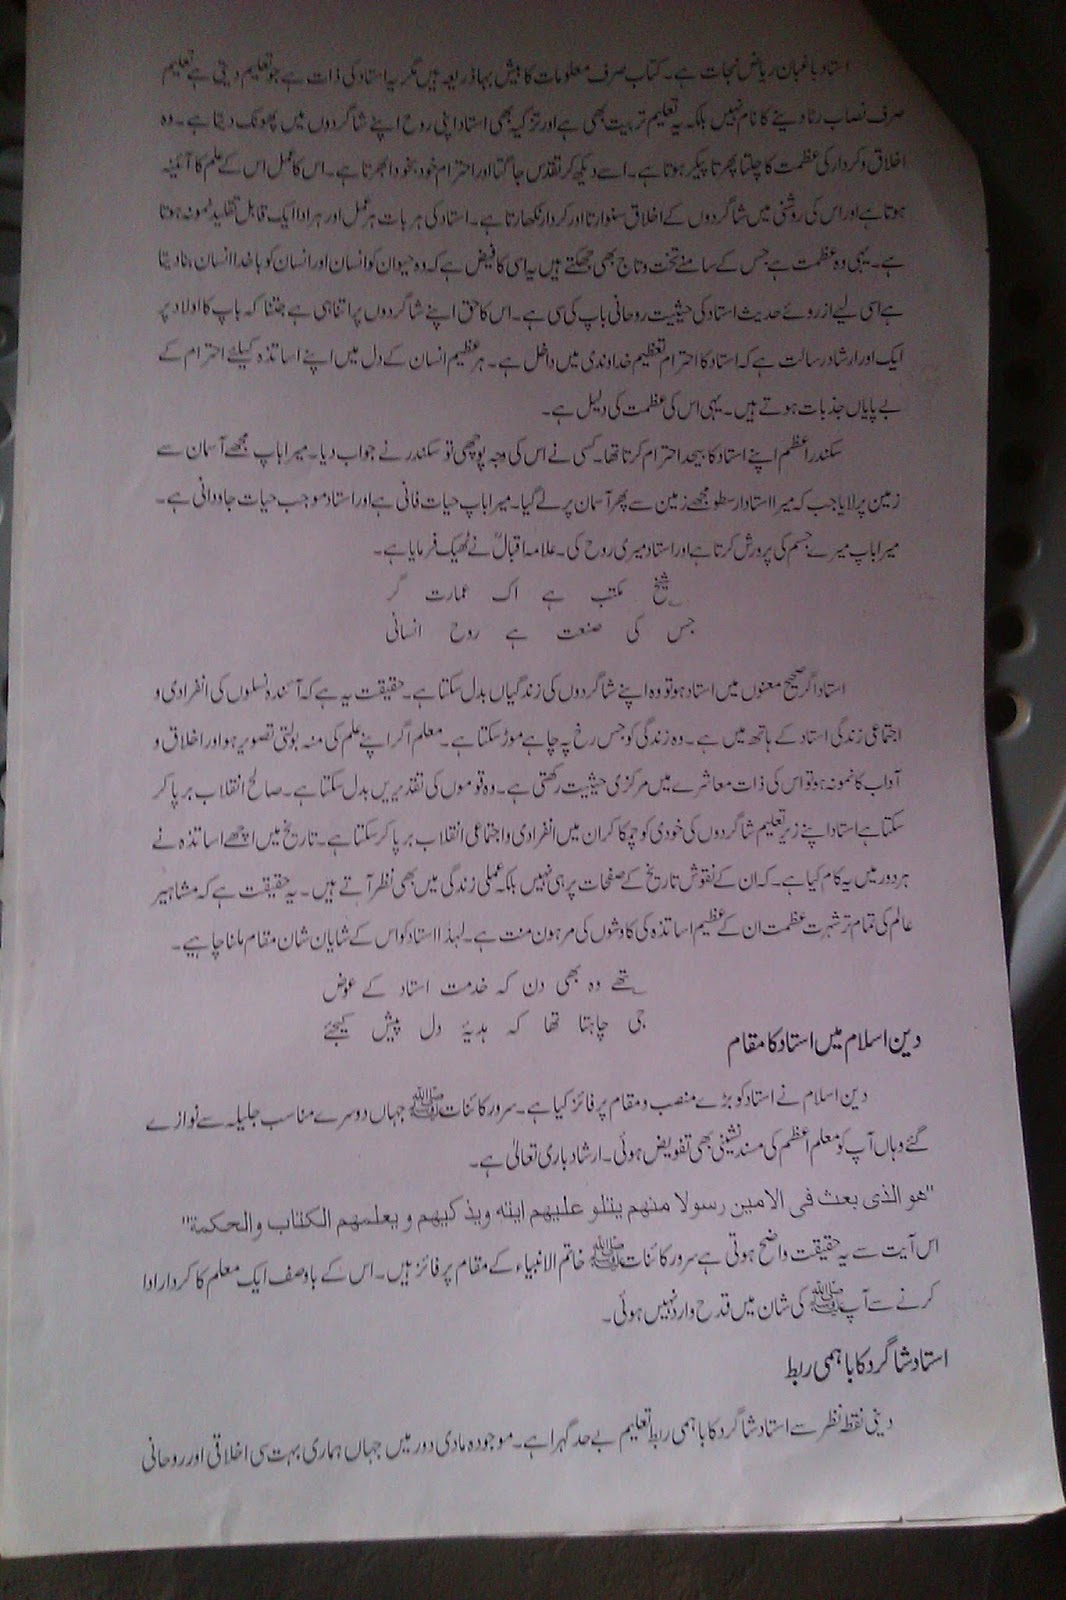 استاد باغبان ریاض نجات ہے۔ کتاب صرف معلومات کا بیش بہا ذریعہ ہیں مگر یہ استاد کی ذات ہے جو تعلیم دیتی ہے تعلیم
صرف نصاب رٹا دینے کا نام نہیں بلکہ یہ تعلیم تربیت بھی ہے اور تزکیہ بھی استاد اپنی روح اپنے شاگردوں میں پھونک دیتا ہے۔ وہ
اخلاق و کردار کی عظمت کا چلتا پھرتا پیکر ہوتا ہے۔ اسے دیکھ کر تقدس جاگتا اور احترام خود بخود ابھرتا ہے۔ اس کا عمل اس کے علم کا آئینہ
ہوتا ہے اور اس کی روشنی میں شاگردوں کے اخلاق سنوارتا اور کردار نکھارتا ہے۔ استاد کی ہر بات ہر عمل اور ہر ادا ایک قابل تقلید نمونہ ہوتا
ہے۔ یہی وہ عظمت ہے جس کے سامنے تخت و تاج بھی جھکتے ہیں یہ اسی کا فیض ہے کہ وہ حیوان کو انسان اور انسان کو باخدا انسان بنا دیتا
ہے اسی لیے از روئے حدیث استاد کی حیثیت روحانی باپ کی سی ہے۔ اس کا حق اپنے شاگردوں پر اتنا ہی ہے جتنا کہ باپ کا اولاد پر
ایک اور ارشاد رسالت ہے کہ استاد کا احترام تعظیم خداوندی میں داخل ہے۔ ہر عظیم انسان کے دل میں اپنے اساتذہ کیلئے احترام کے
بے پایاں جذبات ہوتے ہیں۔ یہی اس کی عظمت کی دلیل ہے۔
سکندر اعظم اپنے استاد کا بیحد احترام کرتا تھا۔ کسی نے اس کی وجہ پوچھی تو سکندر نے جواب دیا۔ میرا باپ مجھے آسمان سے
زمین پر لایا جب کہ میرا استاد ارسطو مجھے زمین سے پھر آسمان پر لے گیا۔ میرا باپ حیات فانی ہے اور استاد موجب حیات جاودانی ہے۔
میرا باپ میرے جسم کی پرورش کرتا ہے اور استاد میری روح کی۔ علامہ اقبالؒ نے ٹھیک فرمایا ہے۔
شیخ مکتب ہے اک عمارت گر
جس کی صنعت ہے روح انسانی
استاد اگر صحیح معنوں میں استاد ہو تو وہ اپنے شاگردوں کی زندگیاں بدل سکتا ہے۔ حقیقت یہ ہے کہ آئندہ نسلوں کی انفرادی و
اجتماعی زندگی استاد کے ہاتھ میں ہے۔ وہ زندگی کو جس رخ پہ چاہے موڑ سکتا ہے۔ معلم اگر اپنے علم کی منہ بولتی تصویر ہو اور اخلاق و
آداب کا نمونہ ہو تو اس کی ذات معاشرے میں مرکزی حیثیت رکھتی ہے۔ وہ قوموں کی تقدیریں بدل سکتا ہے۔ صالح انقلاب برپا کر
سکتا ہے استاد اپنے زیر تعلیم شاگردوں کی خودی کو چمکا کر ان میں انفرادی و اجتماعی انقلاب برپا کر سکتا ہے۔ تاریخ میں اچھے اساتذہ نے
ہر دور میں یہ کام کیا ہے۔ کہ ان کے نقوش تاریخ کے صفحات پر ہی نہیں بلکہ عملی زندگی میں بھی نظر آتے ہیں۔ یہ حقیقت ہے کہ مشاہیر
عالم کی تمام تر شہرت عظمت ان کے عظیم اساتذہ کی کاوشوں کی مرہون منت ہے۔ لہذا استاد کو اس کے شایان شان مقام ملنا چاہیے۔
تھے وہ بھی دن کہ خدمت استاد کے عوض
جی چاہتا تھا کہ ہدیۂ دل پیش کیجئے
دین اسلام میں استاد کا مقام
دین اسلام نے استاد کو بڑے منصب و مقام پر فائز کیا ہے۔ سرور کائنات ﷺ جہاں دوسرے مناسب جلیلہ سے نوازے
گئے وہاں آپ کو معلم اعظم کی مسند نشینی بھی تفویض ہوئی۔ ارشاد باری تعالیٰ ہے۔
"ھو الذی بعث فی الامین رسولا منھم یتلو علیھم ایتہ ویذکیھم و یعلمھم الکتاب والحکمۃ"
اس آیت سے یہ حقیقت واضح ہوتی ہے سرور کائنات ﷺ خاتم الانبیاء کے مقام پر فائز ہیں۔ اس کے باوصف ایک معلم کا کردار ادا
کرنے سے آپ ﷺ کی شان میں قدح وارد نہیں ہوئی۔
استاد شاگرد کا باہمی ربط
دینی نقطہ نظر سے استاد شاگرد کا باہمی ربط تعلیم بے حد گہرا ہے۔ موجودہ مادی دور میں جہاں ہماری بہت سی اخلاقی اور روحانی